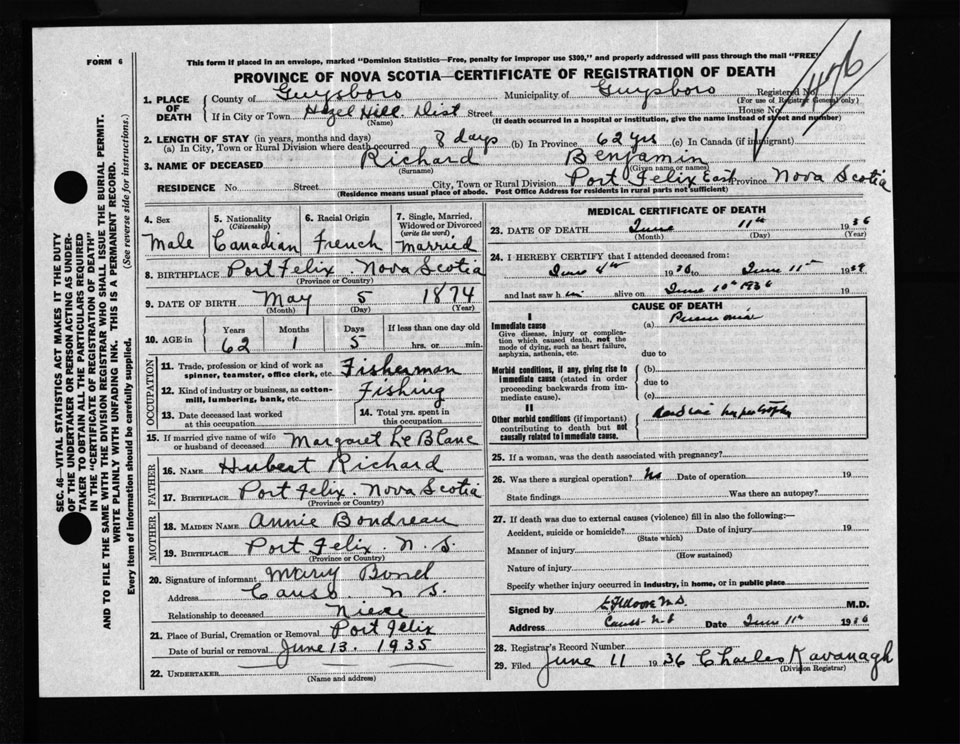 FORM 6
This form if placed in an envelope, marked "Dominion Statistics—Free, penalty for improper use $300," and properly addressed will pass through the mail "FREE"
PROVINCE OF NOVA SCOTIA—CERTIFICATE OF REGISTRATION OF DEATH
1. PLACE OF DEATH
County of Guysboro Municipality of Guysboro Registered No.
(For use of Registrar General only)
If in City or Town Hazel Hill Dist Street House No.
(Name) (If death occurred in a hospital or institution, give the name instead of street and number)
2. LENGTH OF STAY (in years, months and days)
(a) In City, Town or Rural Division where death occurred 8 days (b) In Province 62 yrs (c) In Canada (if immigrant)
3. NAME OF DECEASED Richard Benjamin
(Surname) (Given name or names)
RESIDENCE No. Street City, Town or Rural Division Port Felix East Province Nova Scotia
(Residence means usual place of abode. Post Office Address for residents in rural parts not sufficient)
SEC. 46—VITAL STATISTICS ACT MAKES IT THE DUTY
OF THE UNDERTAKER OR PERSON ACTING AS UNDER-
TAKER TO OBTAIN ALL THE PARTICULARS REQUIRED
IN THE "CERTIFICATE OF REGISTRATION OF DEATH"
AND TO FILE THE SAME WITH THE DIVISION REGISTRAR WHO SHALL ISSUE THE BURIAL PERMIT.
WRITE PLAINLY WITH UNFADING INK. THIS IS A PERMANENT RECORD.
Every item of information should be carefully supplied. (See reverse side for instructions.)
4. Sex
Male
5. Nationality
(Citizenship)
Canadian
6. Racial Origin
French
7. Single, Married,
Widowed or Divorced
(write the word)
Married
8. BIRTHPLACE Port Felix. Nova Scotia
(Province or Country)
9. DATE OF BIRTH May 5 1874
(Month) (Day) (Year)
10. AGE in
Years Months Days If less than one day old
62 1 5 hrs. or min.
OCCUPATION
11. Trade, profession or kind of work as
spinner, teamster, office clerk, etc. Fisherman
12. Kind of industry or business, as cotton-
mill, lumbering, bank, etc. Fishing
13. Date deceased last worked
at this occupation
14. Total yrs. spent in
this occupation
15. If married give name of wife
or husband of deceased Margaret Le Blanc
FATHER
16. NAME Hubert Richard
17. BIRTHPLACE Port Felix. Nova Scotia
(Province or Country)
MOTHER
18. MAIDEN NAME Annie Bondreau
19. BIRTHPLACE Port Felix N. S.
(Province or Country)
20. Signature of informant Mary
Address Canso N. S.
Relationship to deceased Niece
21. Place of Burial, Cremation or Removal Port Felix
Date of burial or removal June 13. 1935
22. UNDERTAKER
(Name and address)
MEDICAL CERTIFICATE OF DEATH
23. DATE OF DEATH June 11th 1936
(Month) (Day) (Year)
24. I HEREBY CERTIFY that I attended deceased from:
June 4th 1936 to June 11th 19
and last saw him alive on June 10th 1936 19
CAUSE OF DEATH
I
Immediate cause
Give disease, injury or complica-
tion which caused death, not the
mode of dying, such as heart failure,
asphyxia, asthenia, etc.
(a) Pneumonia
due to
Morbid conditions, if any, giving rise to
immediate cause (stated in order
proceeding backwards from im-
mediate cause).
(b)
due to
(c)
II
Other morbid conditions (if important)
contributing to death but not
causally related to immediate cause.
Cardiac hypertrophy
25. If a woman, was the death associated with pregnancy?
26. Was there a surgical operation? No Date of operation 19
State findings Was there an autopsy?
27. If death was due to external causes (violence) fill in also the following:—
Accident, suicide or homicide? Date of injury 19
(State which)
Manner of injury
(How sustained)
Nature of injury
Specify whether injury occurred in industry, in home, or in public place
Signed by M.D. M.D.
Address Canso N.S Date June 11th 1936
28. Registrar's Record Number
29. Filed June 11 1936 Charles Kavanagh
(Division Registrar)